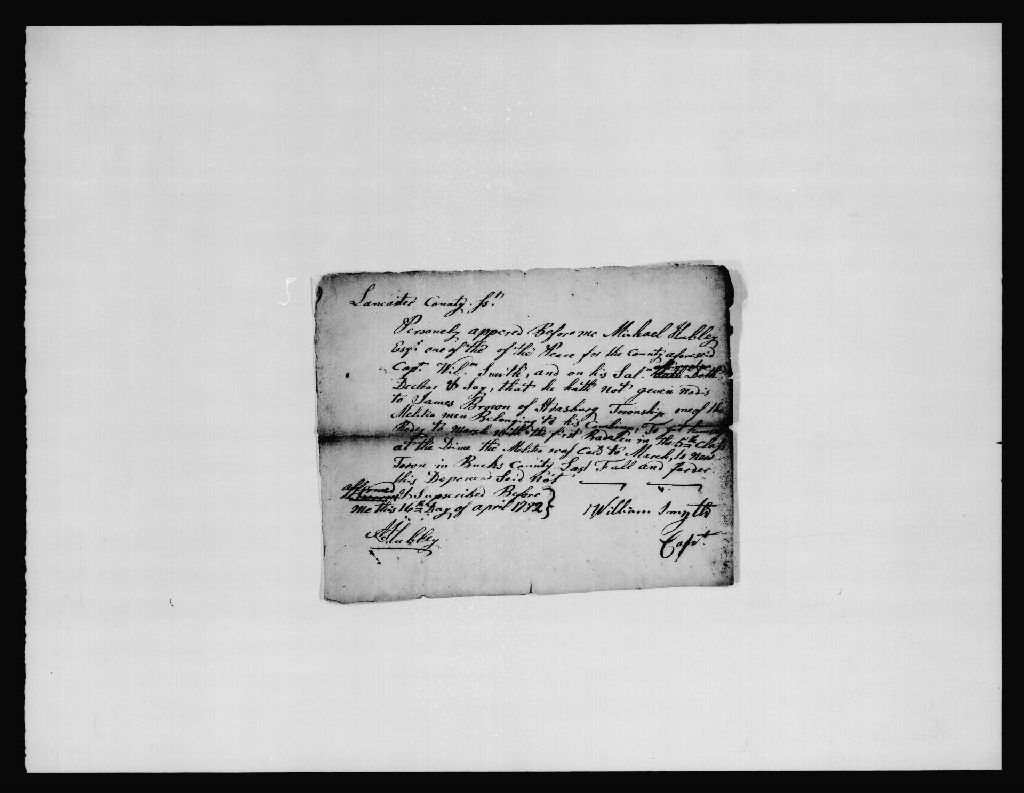 Lancaster County ss.t
Personely appered Before me Michael Hubley
Esqr. one of the of the Peace for the County aforesaid
Capt. Wlm Smith, and on his Sal. affirmation Doth
Declear & Say, that he hath not geven nodis
to James Brown of Strasburg Township one of the
Melitia men Belonging to his Company To get himself
Redy to March with the first Badelin in the 5th Class
at the Dime the Melitia was Cald to March, to New
Town in Bucks County Last Fall and forder
this Deponend Seid not
affirmed & Supscribed Before
me this 16th Day of april 1782
William Smyth
MHubley
Capt.